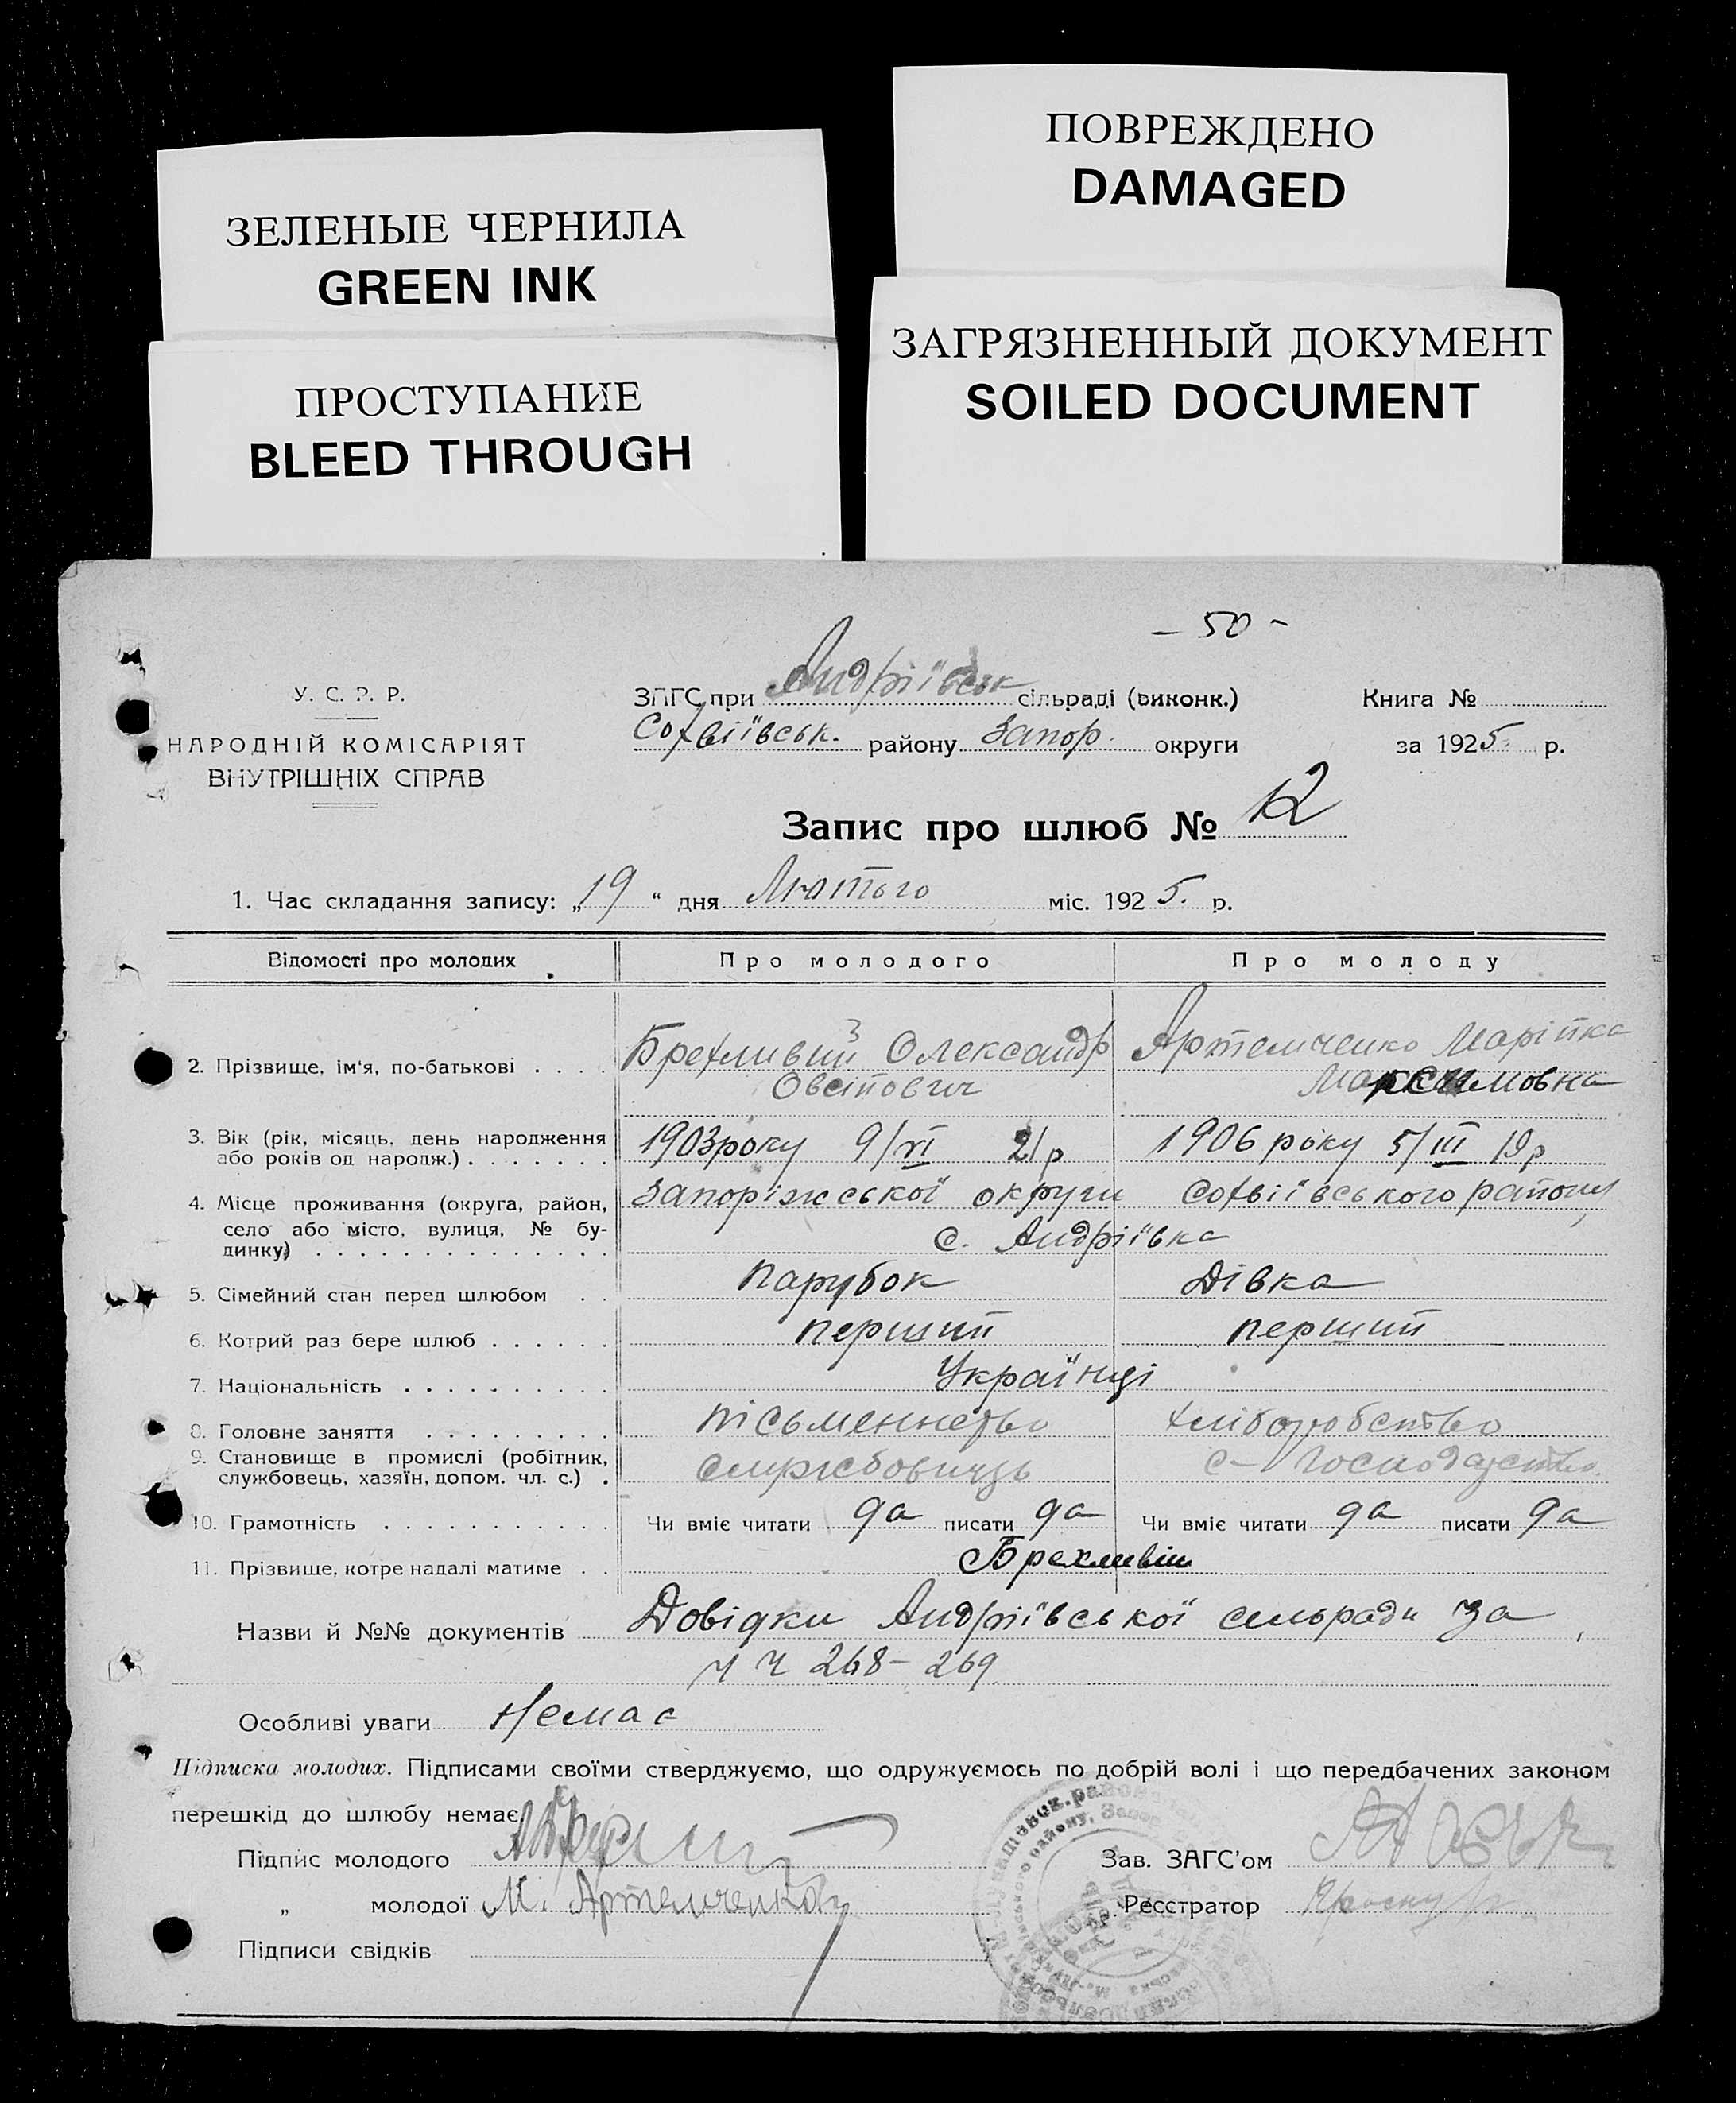 ПОВРЕЖДЕНО
DAMAGED
ЗЕЛЕНЫЕ ЧЕРНИЛА
GREEN INK
ЗАГРЯЗНЕННЫЙ ДОКУМЕНТ
SOILED DOCUMENT
ПРОСТУПАНИЕ
BLEED THROUGH
- 50 -
У. С. Р. Р.
НАРОДНІЙ КОМІСАРІЯТ
ВНУТРІШНІХ СПРАВ
ЗАГС при Андріївськ сільраді (виконк.) Книга №
Софіївськ. району Запор. округи за 1925 р.
Запис про шлюб № 12
1. Час складання запису: „19“ дня Лютого міс. 1925. р.
Відомості про молодих Про молодого Про молоду
2. Прізвище, ім'я, по-батькові Брехливий Олександр Артемченко Марійка
Овсійович Максимовна
3. Вік (рік, місяць, день народження або років од народж.) 1903 року 9/VI 21 р 1906 року 5/III 19 р
4. Місце проживання (округа, район, Запоріжської округи Софіївського району
село або місто, вулиця, № будинку) с. Андріївка
5. Сімейний стан перед шлюбом Парубок Дівка
6. Котрий раз бере шлюб перший перший
7. Національність Українці
8. Головне заняття письменнство хліборобство
9. Становище в промислі (робітник, службовець, хазяїн, допом. чл. с.) службовиць с- господарство
10. Грамотність Чи вміє читати да писати да Чи вміє читати да писати да
11. Прізвище, котре надалі матиме Брехливіи
Назви й №№ документів Довідки Андріївської сельради за
ч ч 268- 269
Особливі уваги Немає
Підписка молодих. Підписами своїми стверджуємо, що одружуємось по добрій волі і що передбачених законом
перешкід до шлюбу немає
Підпис молодого Зав. ЗАГС'ом
„ молодої М. Артемченкова Реєстратор
Підписи свідків